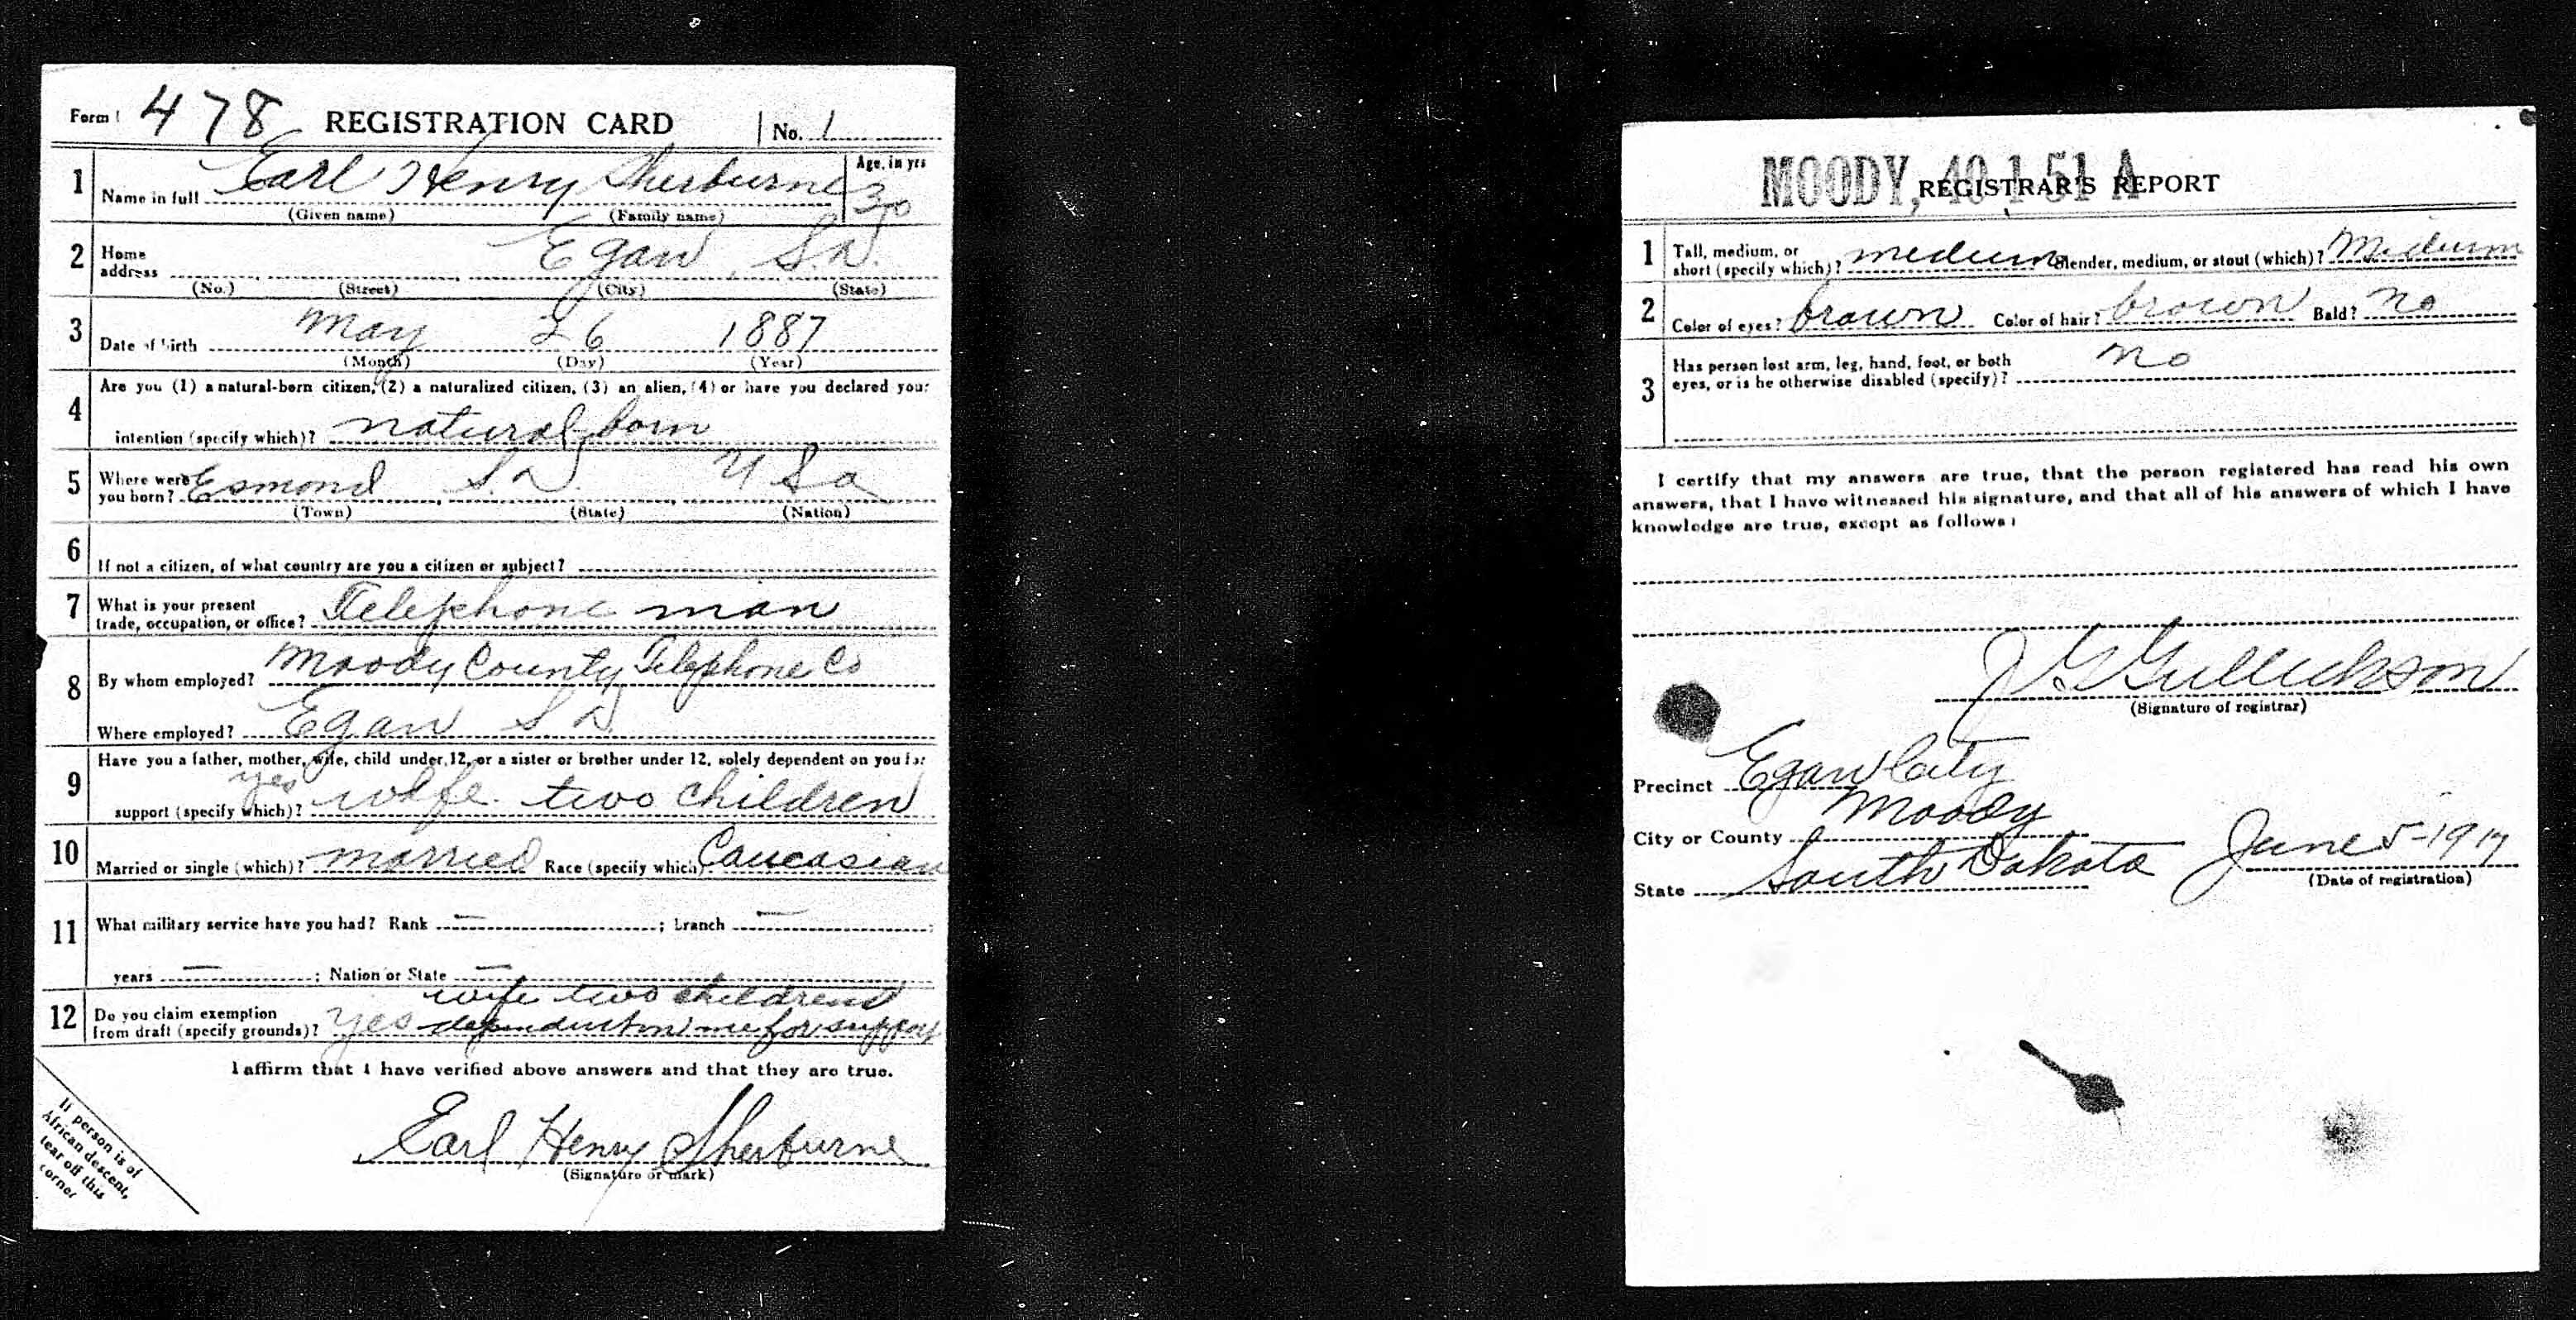 Form 1 478 REGISTRATION CARD No. 1
1 Name in full Earl Henry Sherburne Age, in yrs 30
(Given name) (Family name)
2 Home address Egan, S.D.
(No.) (Street) (City) (State)
3 Date of birth May 26 1887
(Month) (Day) (Year)
4 Are you (1) a natural-born citizen, (2) a naturalized citizen, (3) an alien, (4) or have you declared your
intention (specify which)? natural-born
5 Where were you born? Esmond S.D. U S a
(Town) (State) (Nation)
6 If not a citizen, of what country are you a citizen or subject?
7 What is your present trade, occupation, or office? Telephone man
8 By whom employed? Moody County Telephone Co
Where employed? Egan S D.
9 Have you a father, mother, wife, child under 12, or a sister or brother under 12, solely dependent on you for
support (specify which)? yes wife. two children
10 Married or single (which)? married Race (specify which) Caucasian
11 What military service have you had? Rank — ; branch — ;
years — ; Nation or State —
wife two children
12 Do you claim exemption from draft (specify grounds)? Yes dependent on me for support
I affirm that I have verified above answers and that they are true.
Earl Henry Sherburne
(Signature or mark)
If person is of
African descent,
tear off this
corner
MOODY, 40 1 51 A REGISTRAR'S REPORT
1 Tall, medium, or short (specify which)? medium Slender, medium, or stout (which)? Medium
2 Color of eyes? brown Color of hair? brown Bald? no
3 Has person lost arm, leg, hand, foot, or both eyes, or is he otherwise disabled (specify)? no
I certify that my answers are true, that the person registered has read his own
answers, that I have witnessed his signature, and that all of his answers of which I have
knowledge are true, except as follows:
J G Gullickson
(Signature of registrar)
Precinct Egan City
City or County Moody
State South Dakota June 5-1917
(Date of registration)